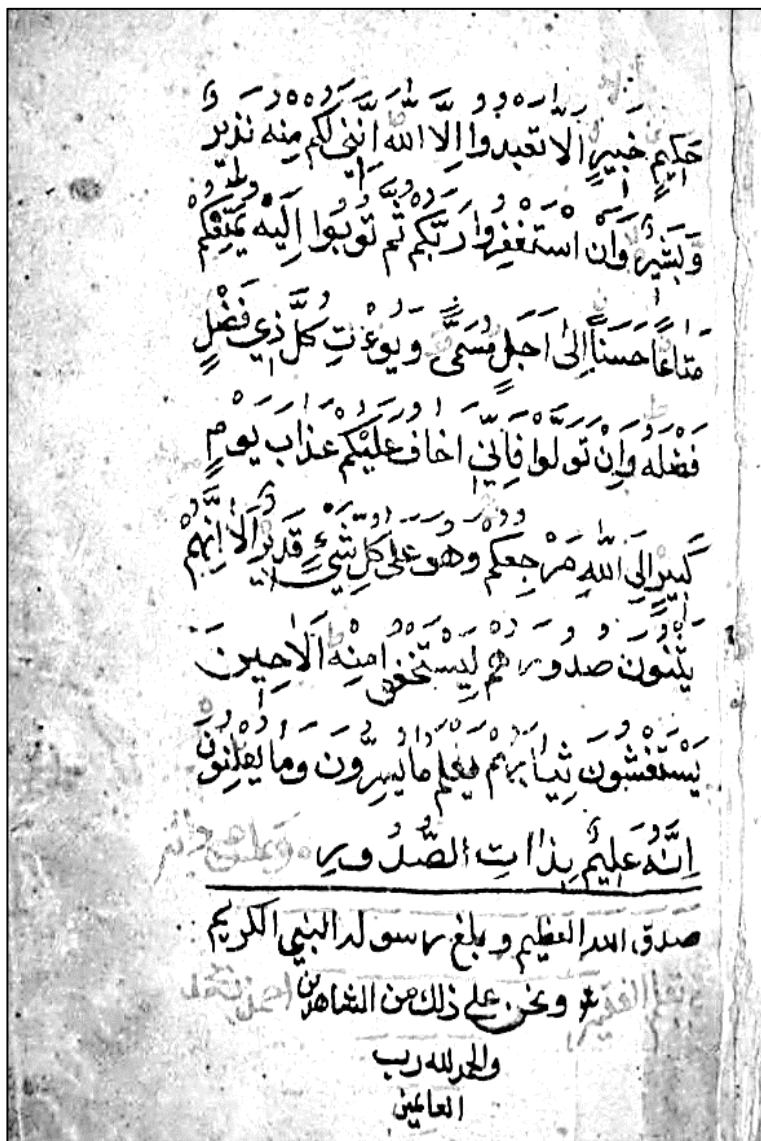 حَكِيمٍ خَبِيرٍ اَلَّا تَعْبُدُوا اِلَّا اللّٰهَ اِنَّنِي لَكُمْ مِنْهُ نَذِيرٌ
وَبَشِيرٌ وَاَنْ اسْتَغْفِرُوا رَبَّكُمْ ثُمَّ تُوبُوا اِلَيْهِ يُمَتِّعْكُمْ
مَتَاعًا حَسَنًا اِلٰى اَجَلٍ مُسَمًّى وَيُوءْتِ كُلَّ ذِي فَضْلٍ
فَضْلَهُ وَاِنْ تَوَلَّوْا فَاِنِّي اَخَافُ عَلَيْكُمْ عَذَابَ يَوْمٍ
كَبِيرٍ اِلَى اللّٰهِ مَرْجِعُكُمْ وَهُوَ عَلٰى كُلِّ شَيْءٍ قَدِيرٌ اَلَا اِنَّهُمْ
يَثْنُونَ صُدُورَهُمْ لِيَسْتَخْفُوا مِنْهُ اَلَا حِينَ
يَسْتَغْشُونَ ثِيَابَهُمْ يَعْلَمُ مَا يُسِرُّونَ وَمَا يُعْلِنُونَ
اِنَّهُ عَلِيمٌ بِذَاتِ الصُّدُورِ
صدق الله العظيم وبلغ رسوله النبي الكريم
ونحن على ذلك من الشاهدين
والحمد لله رب
العالمين